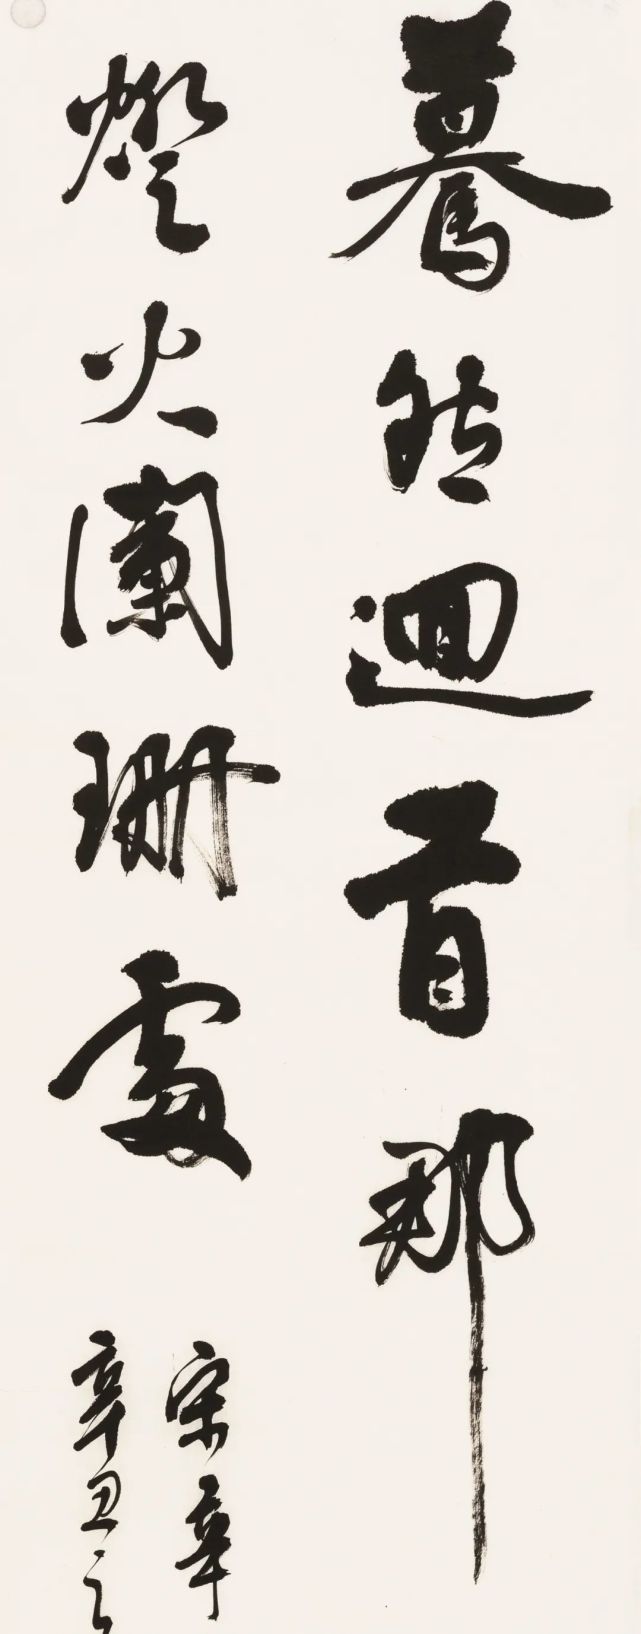 驀然迴首那
燈火闌珊處
宋辛
辛丑之